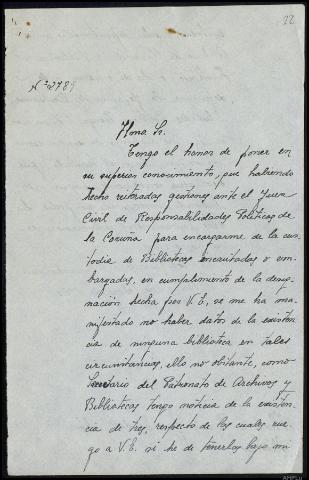 22
Nº 2789
Ilmo Sr.
Tengo el honor de poner en
su superior conocimiento, que habiendo
hecho reiteradas gestiones ante el Juez
Civil de Responsabilidades Políticas de
la Coruña para encargarme de la cus-
todia de Bibliotecas incautadas o em-
bargadas, en cumplimiento de la desig-
nación hecha por V.E, se me ha ma-
nifestado no haber datos de la existen-
cia de ninguna biblioteca en tales
circunstancias, ello no obstante, como
Secretario del Patronato de Archivos y
Bibliotecas tengo noticia de la existen-
cia de tres, respecto de las cuales rue-
go a V.E. si he de tenerlas bajo mi